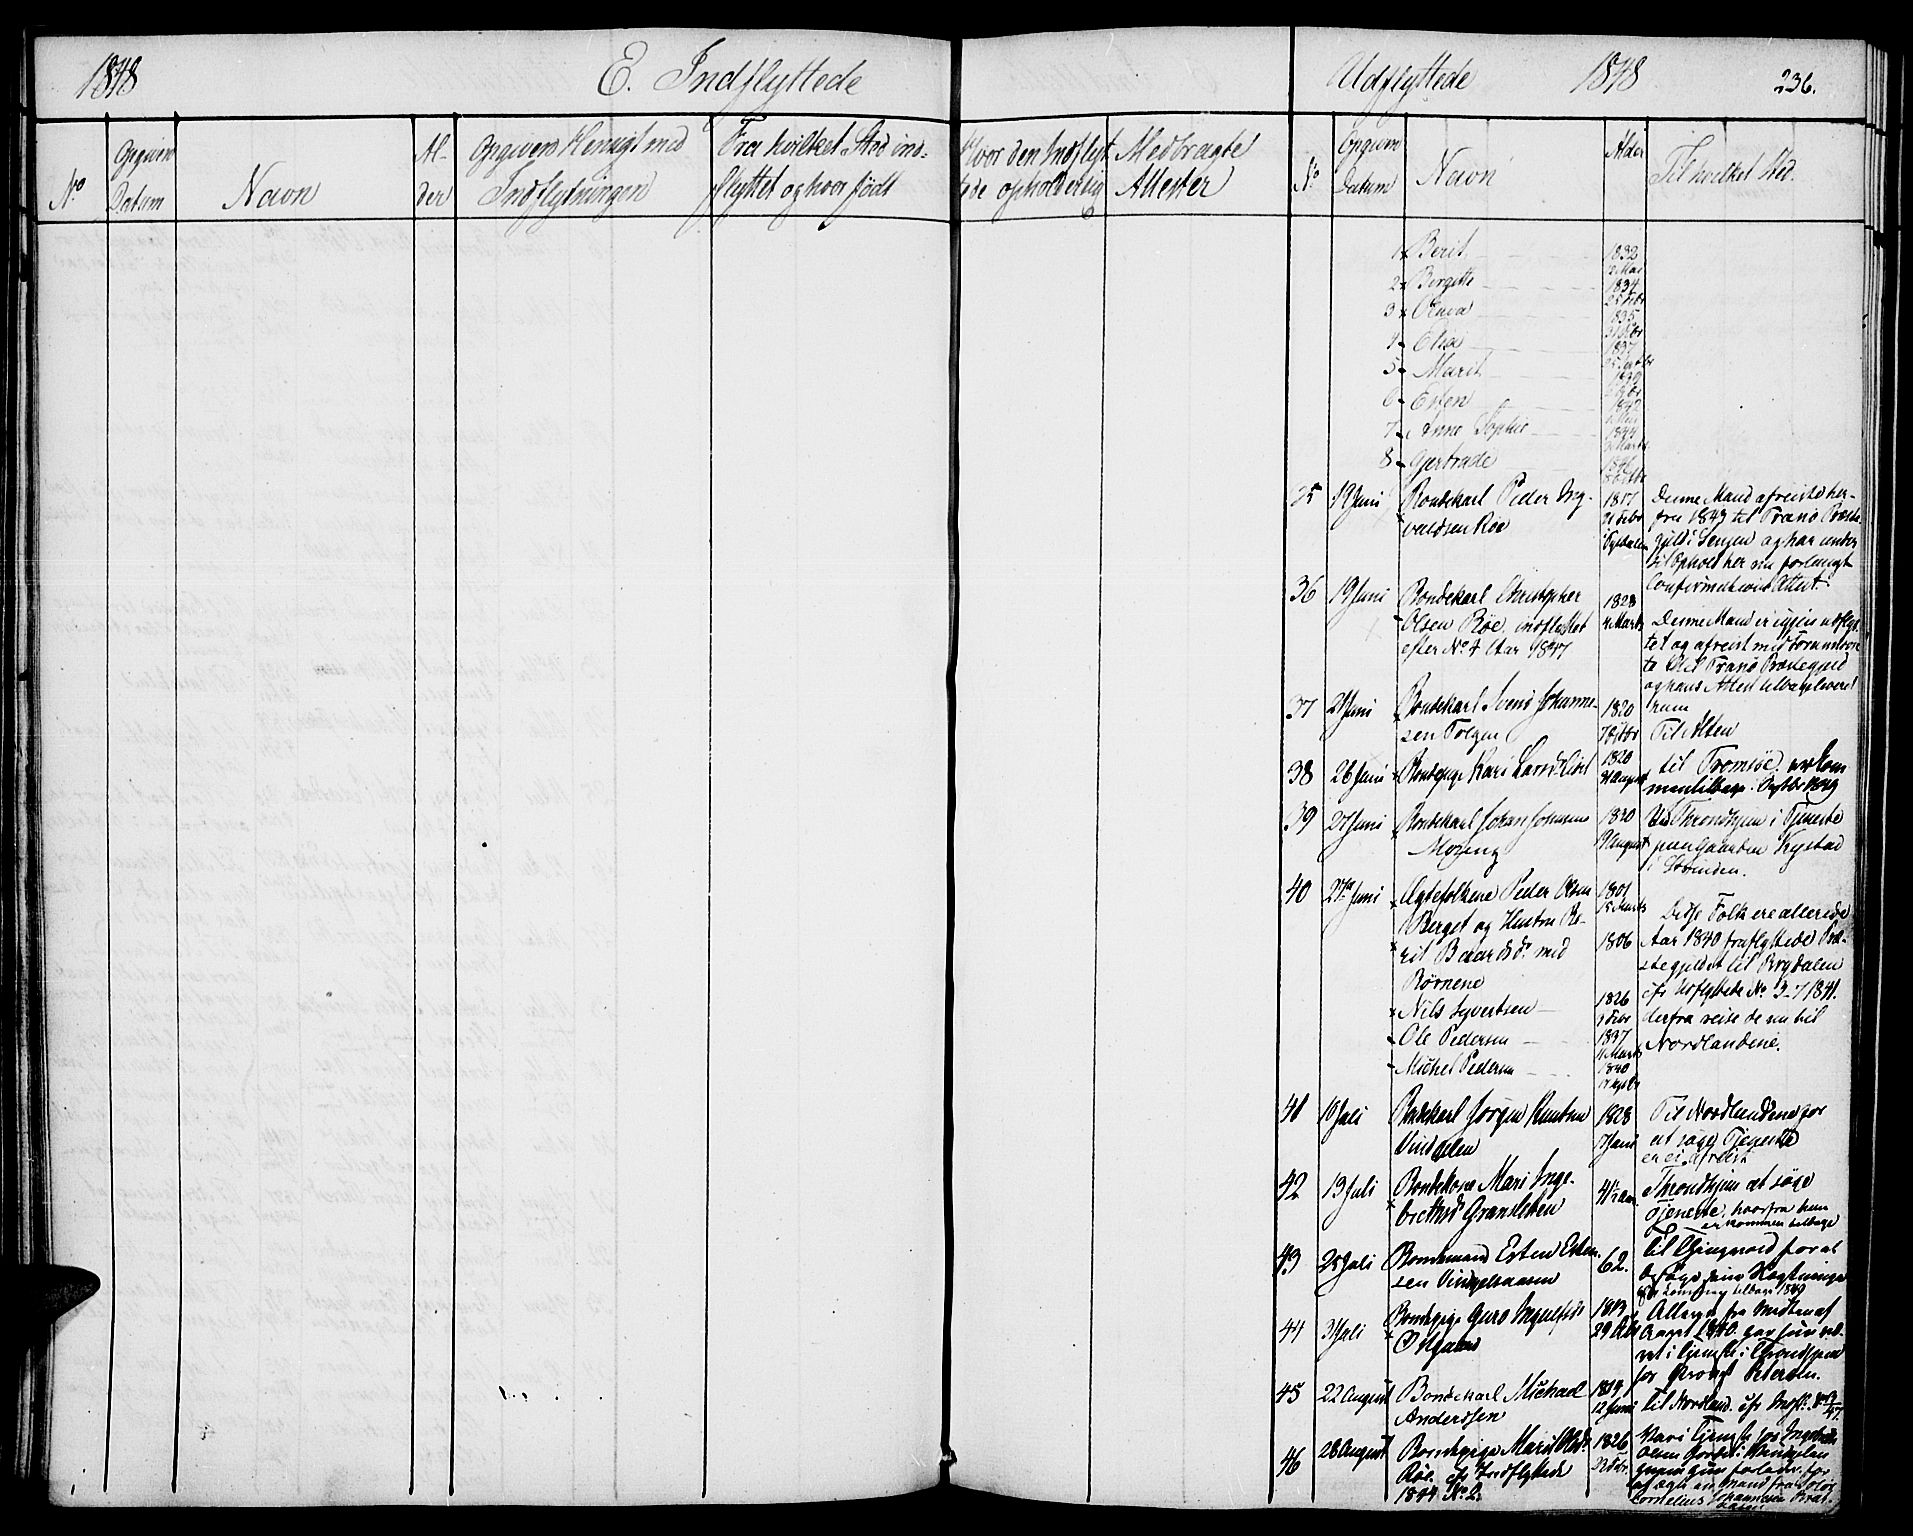 1848
E. Indflyttede
Udflyttede
1848
236.
No
Opgiven
Datum
Navn
Al-
der
Opgiven Hensigt med
Indflytningen
Fra hvilket Sted ind-
flyttet og hvor født
Hvor den Indflyt
tede opholder sig
Medbragte
Attester
No
Opgiven
Datum
Navn
Alder
Til hvilket Sted.
1 Berit 1832
2 Birgitte 1834
3 Olava 1835
4 Elsa 1837
5 Marit 1839
6 Esten 1842
7 Anne Sophie 1844
8 Gjertrude
35 19 Juni Bondekarl Peder Ing-
valdsen Røe
1817
21 Febr
Tydalen
Denne Mand afreiste her-
fra 1843 til Tranø Præste
gjeld i Senjen og har under
sit Ophold her nu forlangt
Confirmations Attest.
36 19 Juni Bondekarl Christopher
Olsen Røe, indflyttet
efter No 4 Aar 1847
1828
4 Marts
Denne Mand er igjen udflyt
tet og afreist med Forannævn
te til Tranø Præstegjeld
og hans Attest tilbageleveret
ham
37 21 Juni Bondekarl Svend Johanne-
sen Tolgen
1820
Til Alten
38 26 Juni Bondepige Kari Larsd.
1820
31 August
til Tromsøe, er kom
men tilbage. 1849
39 27 Juni Bondekarl Johan Johnsen
Moseng
1820
9 August
Ved Throndhjem i Tjeneste
paa Gaarden Kystad
i Strinden.
40 27de Juni Ægtefolkene Peder Olsen
Berget og Hustru Be-
rit Baardsdr. med
Børnene
1801
15 Marts
1806
Disse Folk ere allerede
Aar 1840 fraflyttede Præ-
stegjeldet til Rugdalen
cfr Udflyttede No. 3-7 1841.
derfra reise de nu til
Nordlandene.
Nils Syvertsen 1826
Febr
Ole Pedersen 1837
11 Marts
Michel Pedersen 1840
41 10 Juli Bondekarl Jørgen Knutsen
Vingelen
1828
17 Janr
Til Nordlandene for
at søge Tjeneste
er ei afreist
42 13 Juli Bondekone Mari Inge-
brethsd. Gransletten
41½ aar
Throndhjem at søge
Tjeneste, hvorfra hun
er kommen tilbage
43 28 Juli Bondemand Esten Esten-
sen Vingelsaasen
62.
Til Tjingvold for at
besøge sine Slægtninge
er kommen tilbage 1849
44 31 Juli Bondepige Guro Ingulfsd.
Østgaard
1813
29 Oktr
Allerede fra Midten af
Aaret 1840 har hun væ-
ret i Tjeneste i Throndhjem
for Provst Petersen.
45 22 August Bondekarl Michael
Andersen
1819
12 Juni
til Nordland. cfr Indfl. No 13/47.
46 28 August Bondepige Marit Olsd.
Røe. cfr Indflyttede
1844 No 2.
1826
22 Febr.
Cornelius Johannesen